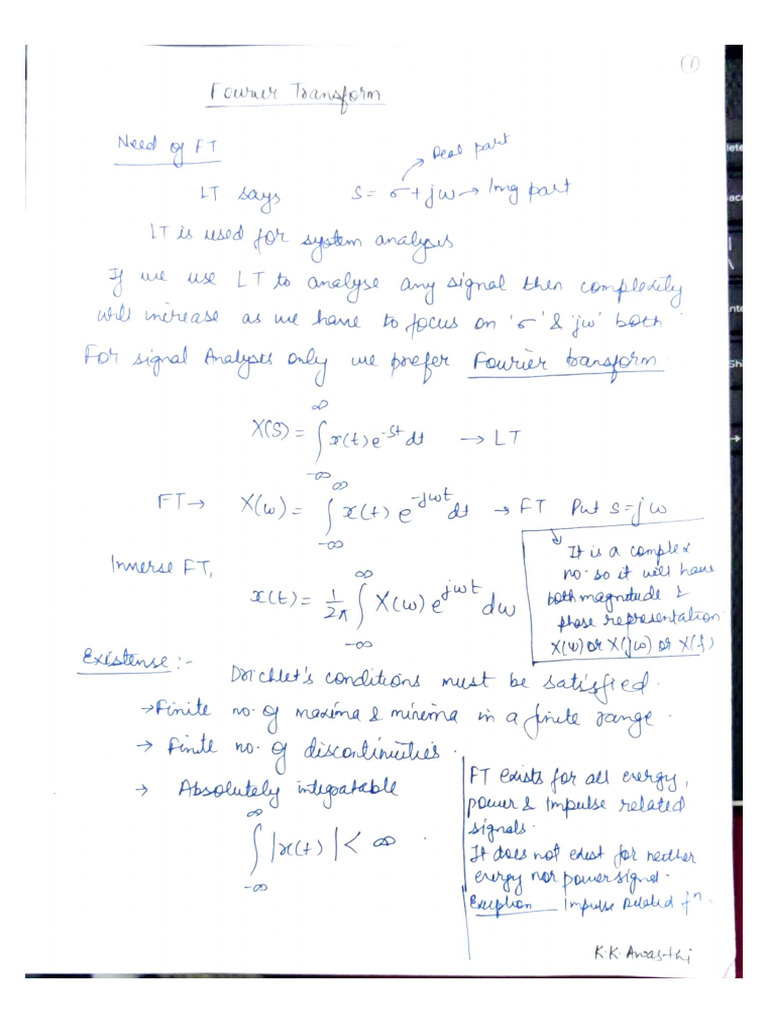 (1)
Fourier Transform
Need of FT
Real part
LT says S = σ + jω → Img part
LT is used for system analyses
If we use LT to analyse any signal then complexity
will increase as we have to focus on 'σ' & 'jω' both.
For signal Analyses only we prefer Fourier transform.
X(S) = ∫_{-∞}^{∞} x(t) e^{-st} dt → LT
FT → X(ω) = ∫_{-∞}^{∞} x(t) e^{-jωt} dt → FT Put s = jω
It is a complex
no. so it will have
both magnitude &
phase representation
X(ω) or X(jω) or X(f)
Inverse FT,
x(t) = 1/2π ∫_{-∞}^{∞} X(ω) e^{jωt} dω
Existense :-
Drichlet's conditions must be satisfied.
→ Finite no. of maxima & minima in a finite range.
→ Finite no. of discontinuities.
→ Absolutely integratable
∫_{-∞}^{∞} |x(t)| < ∞ .
FT exists for all energy,
power & impulse related
signals.
It does not exist for neither
energy nor power signal.
Exception Impulse related fⁿ.
K.K. Awasthi
ete
ac
nte
Shi